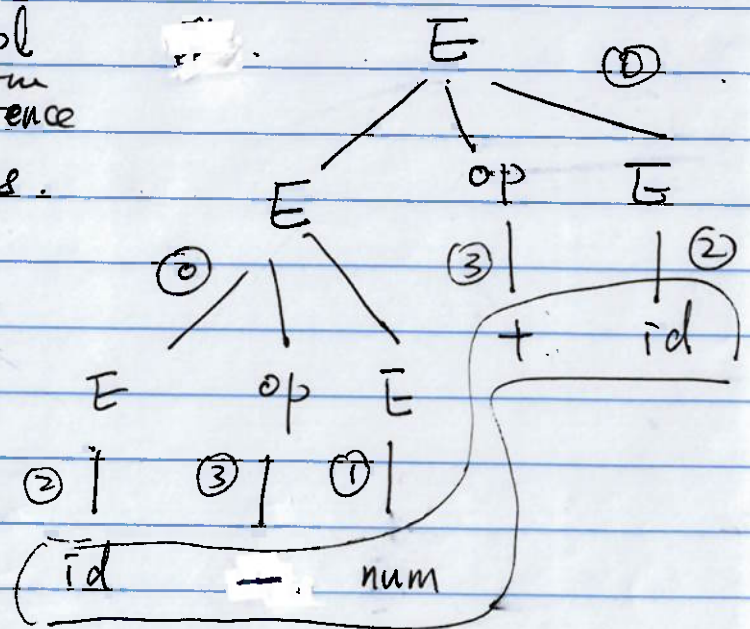 E
⓪
ence
s.
E op E
⓪ ③ ②
+ id
E op E
② ③ ①
id - num